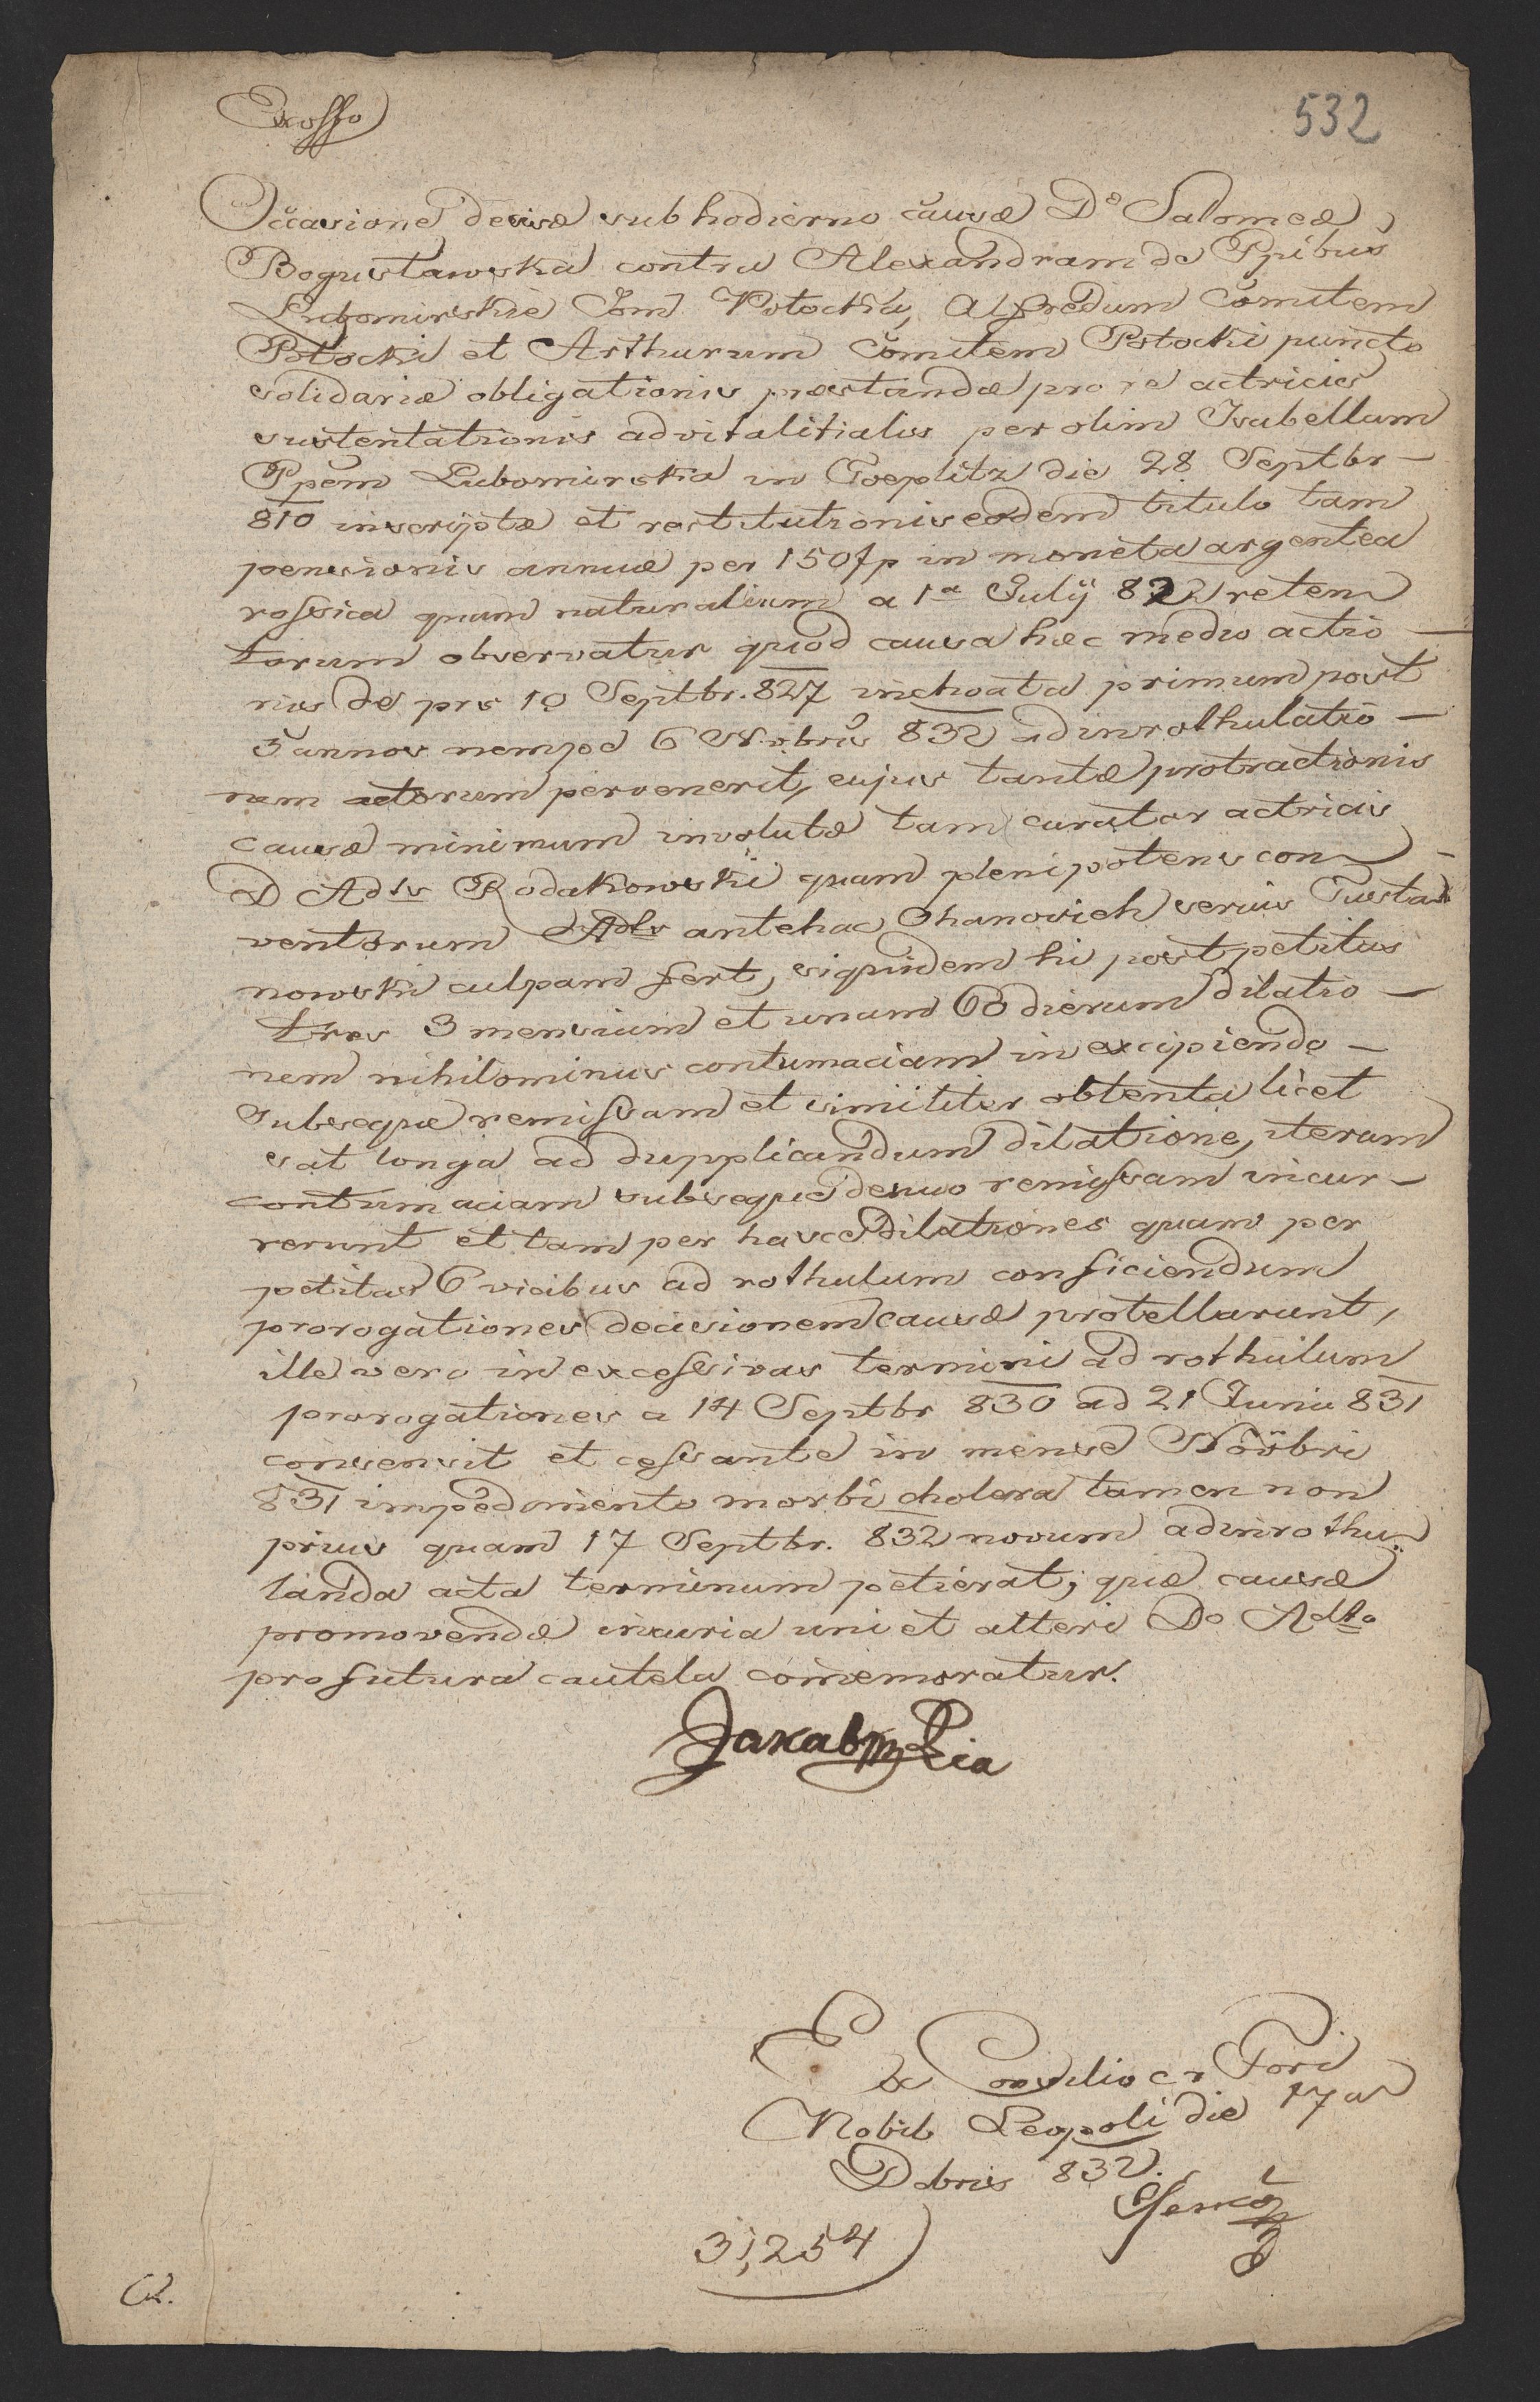 Exoffo
532
Occasione decisæ sub hodierno causæ De Salomeæ
Bogusławska contra Alexandram de Ppibus
Lubomirskie Com Potocka, Alfredum Comitem
Potocki et Arthurum Comitem Potocki puncto
solidariæ obligationis præstandæ pro re actricis
sustentationis advitalitialis per olim Isabellam
Ppem Lubomirska in Toeplitz die 28 Septbr
810 inscriptæ et restitutionis eodem titulo tam
pensionis annuæ per 150 fp in moneta argentea
rossica quam naturalium a 1a July 822 reten
torum observatur quod causa hæc medio actio
nis de prs 10 Septbr. 827 inchoata primum post
5 annos nempe 6 Nobris 832 ad inrothulatio
nem actorum pervenerit, cujus tantæ protractionis
causæ minimum involutæ tam curator actricis
D Adts Rodakowski quam plenipotens con
ventorum Adts antehac Ohanovich serius Tusta
nowski culpam fert, siquidem hi post petitas
tres 3 mensium et unam 60 dierum dilatio
nem nihilominus contumaciam in excipiendo
subseque remissam et similiter obtenta licet
sat longa ad dupplicandum dilatione, iterum
contumaciam subseque denuo remissam incur
rerunt et tam per hasce dilationes quam per
petitas 6 vicibus ad rothulum conficiendum
prorogationes decisionem causæ protellarunt,
ille vero in excessivas termini ad rothulum
prorogationes a 14 Septbr 830 ad 21 Junii 831
consensit et cessante in mense Novbri
831 impedimento morbi cholera tamen non
prius quam 17 Septbr. 832 novum ad inrothu
landa acta terminum petierat; quæ causæ
promovendæ incuria uni et alteri Do Adto
pro futura cautela commemoratur.
Ex Consilio cr Fori
Nobil Leopoli die 17a
Dobris 832.
31,254